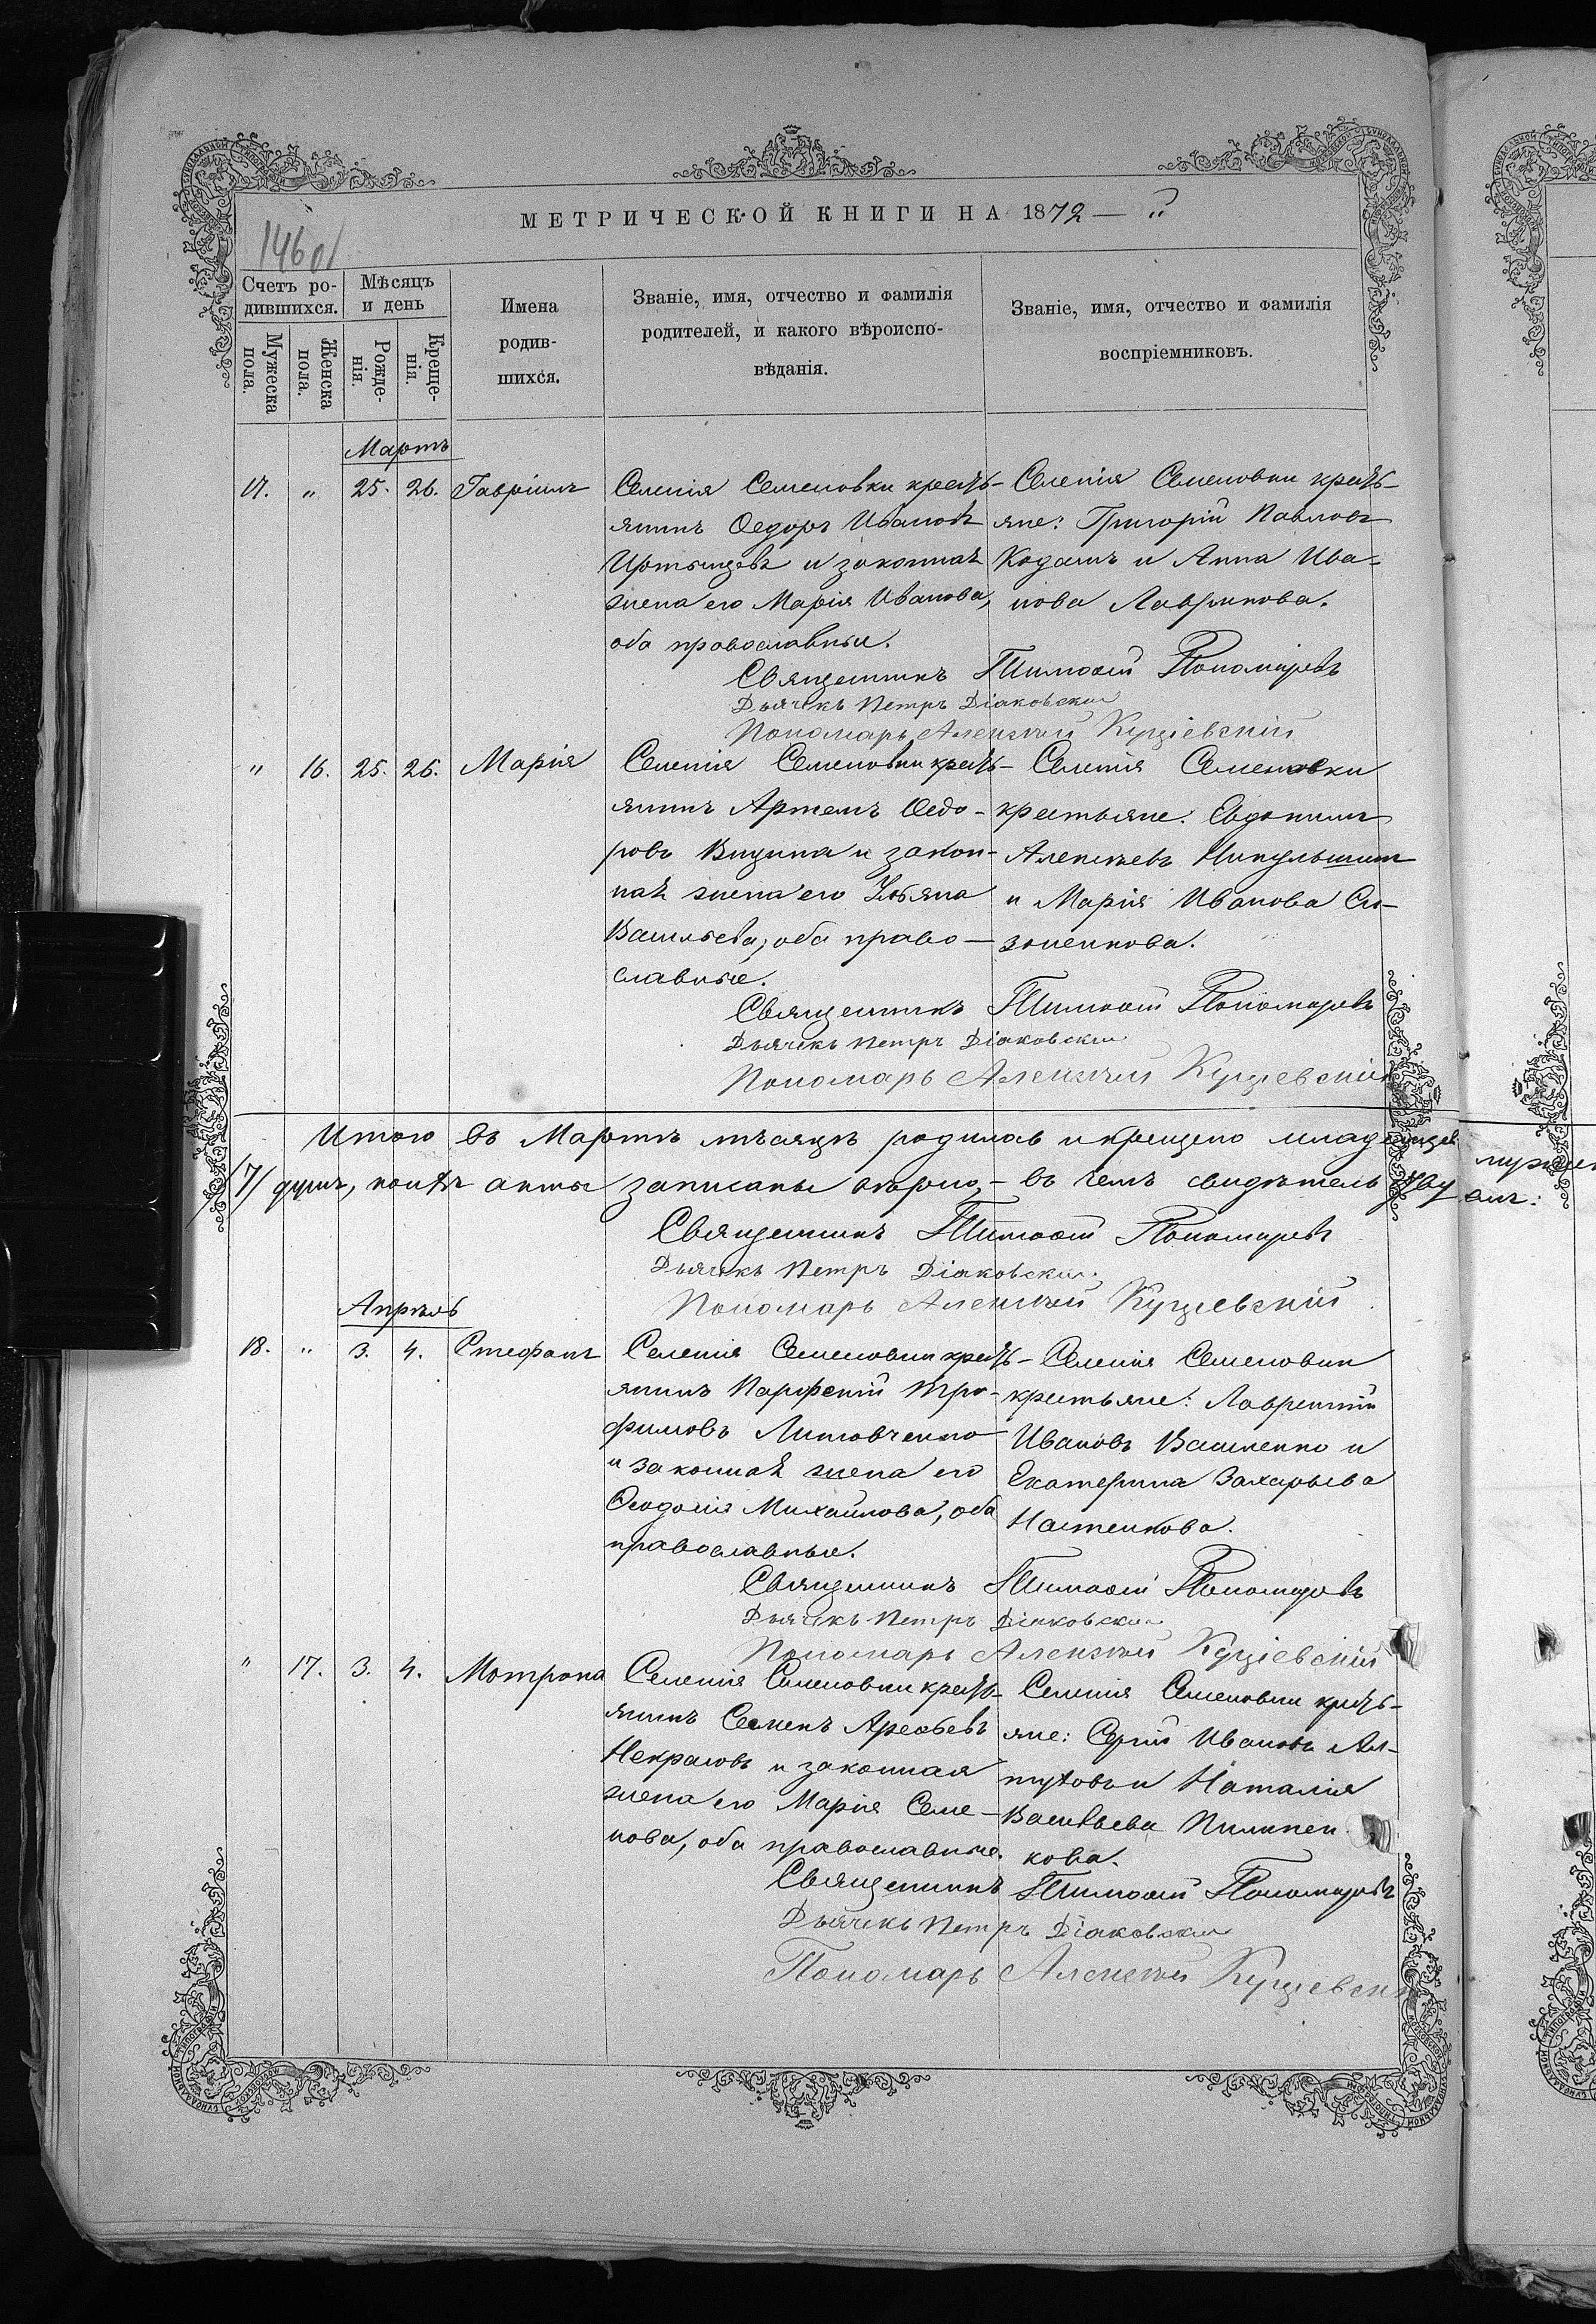 МЕТРИЧЕСКОЙ КНИГИ НА 1872 — "
Счетъ ро-
дившихся.
Мужеска
пола.
Женска
пола.
Мѣсяцъ
и день
Рожде-
нія.
Креще-
нія.
Имена
родив-
шихся.
Званіе, имя, отчество и фамилія
родителей, и какого вѣроиспо-
вѣданія.
Званіе, имя, отчество и фамилія
воспріемниковъ.
Мартъ
17. " 25. 26. Гавріилъ
Селенія Семеновки кресть-
янинъ Ѳедоръ Ивановъ
и законная
жена его Марія Иванова,
оба православные.
Селенія Семеновки кресть-
яне: Григорій Павловъ
и Анна Ива-
нова
Священникъ Тимоѳей Пономаревъ
Дьячекъ Петръ Діаковскій
Пономарь Алексѣй
" 16. 25. 26. Марія
Селенія Семеновки кресть-
янинъ Артемъ Ѳедо-
ровъ и закон-
ная жена его Ульяна
Васильева, оба право-
славные.
Селенія Семеновки
крестьяне: Евдокимъ
Алексѣевъ
и Марія Иванова Си-
зоненкова.
Священникъ Тимоѳей Пономаревъ
Дьячекъ Петръ Діаковскій
Пономарь Алексѣй
Итого въ Мартѣ мѣсяцѣ родилось и крещено младенцевъ
/7/ душъ, акты записаны вѣрно, — въ чемъ свидѣтельству
емъ:
Священникъ Тимоѳей Пономаревъ
Дьячекъ Петръ Діаковскій
Пономарь Алексѣй
Апрѣль
18. " 3. 4. Стефанъ
Селенія Семеновки кресть-
янинъ Парфеній Тро-
фимовъ Литовченко
и законная жена его
Ѳеодосія Михайлова, оба
православные.
Селенія Семеновки
крестьяне: Лаврентій
Ивановъ Василенко и
Екатерина Захарьева
Настенкова.
Священникъ Тимоѳей Пономаревъ
Дьячекъ Петръ Діаковскій
Пономарь Алексѣй
" 17. 3. 4. Мотрона
Селенія Семеновки кресть-
янинъ Семенъ
Некрасовъ и законная
жена его Марія Семе-
нова, оба православные.
Селенія Семеновки кресть-
яне: Сергій Ивановъ
и Наталія
Васильева Пилипен-
кова.
Священникъ Тимоѳей Пономаревъ
Дьячекъ Петръ Діаковскій
Пономарь Алексѣй